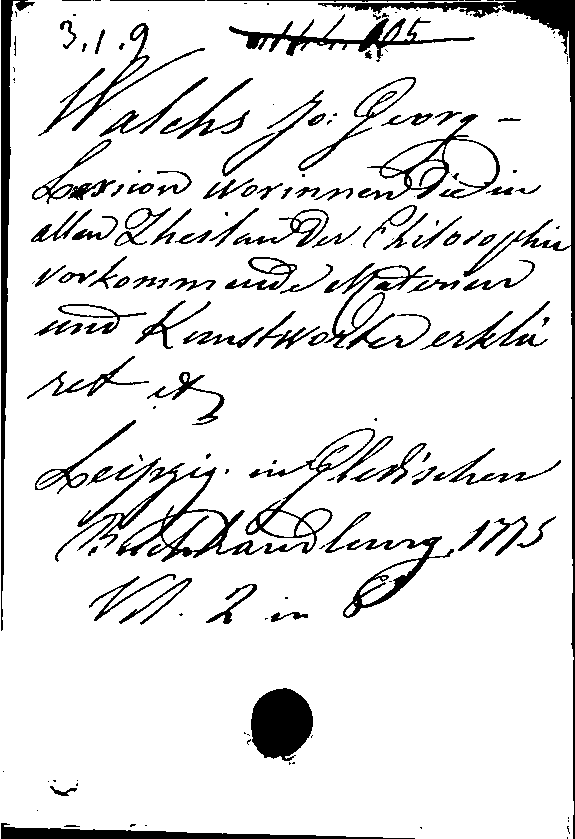 3.1.9
Walchs Jo: Georg –
Lexicon worinnen die in
allen Theilen der Philosophie
vorkommende Materien
und Kunstwörter erklä
ret etz
Leipzig. in Gledischen
Buchhandlung 1775
Vol. 2 in 8º